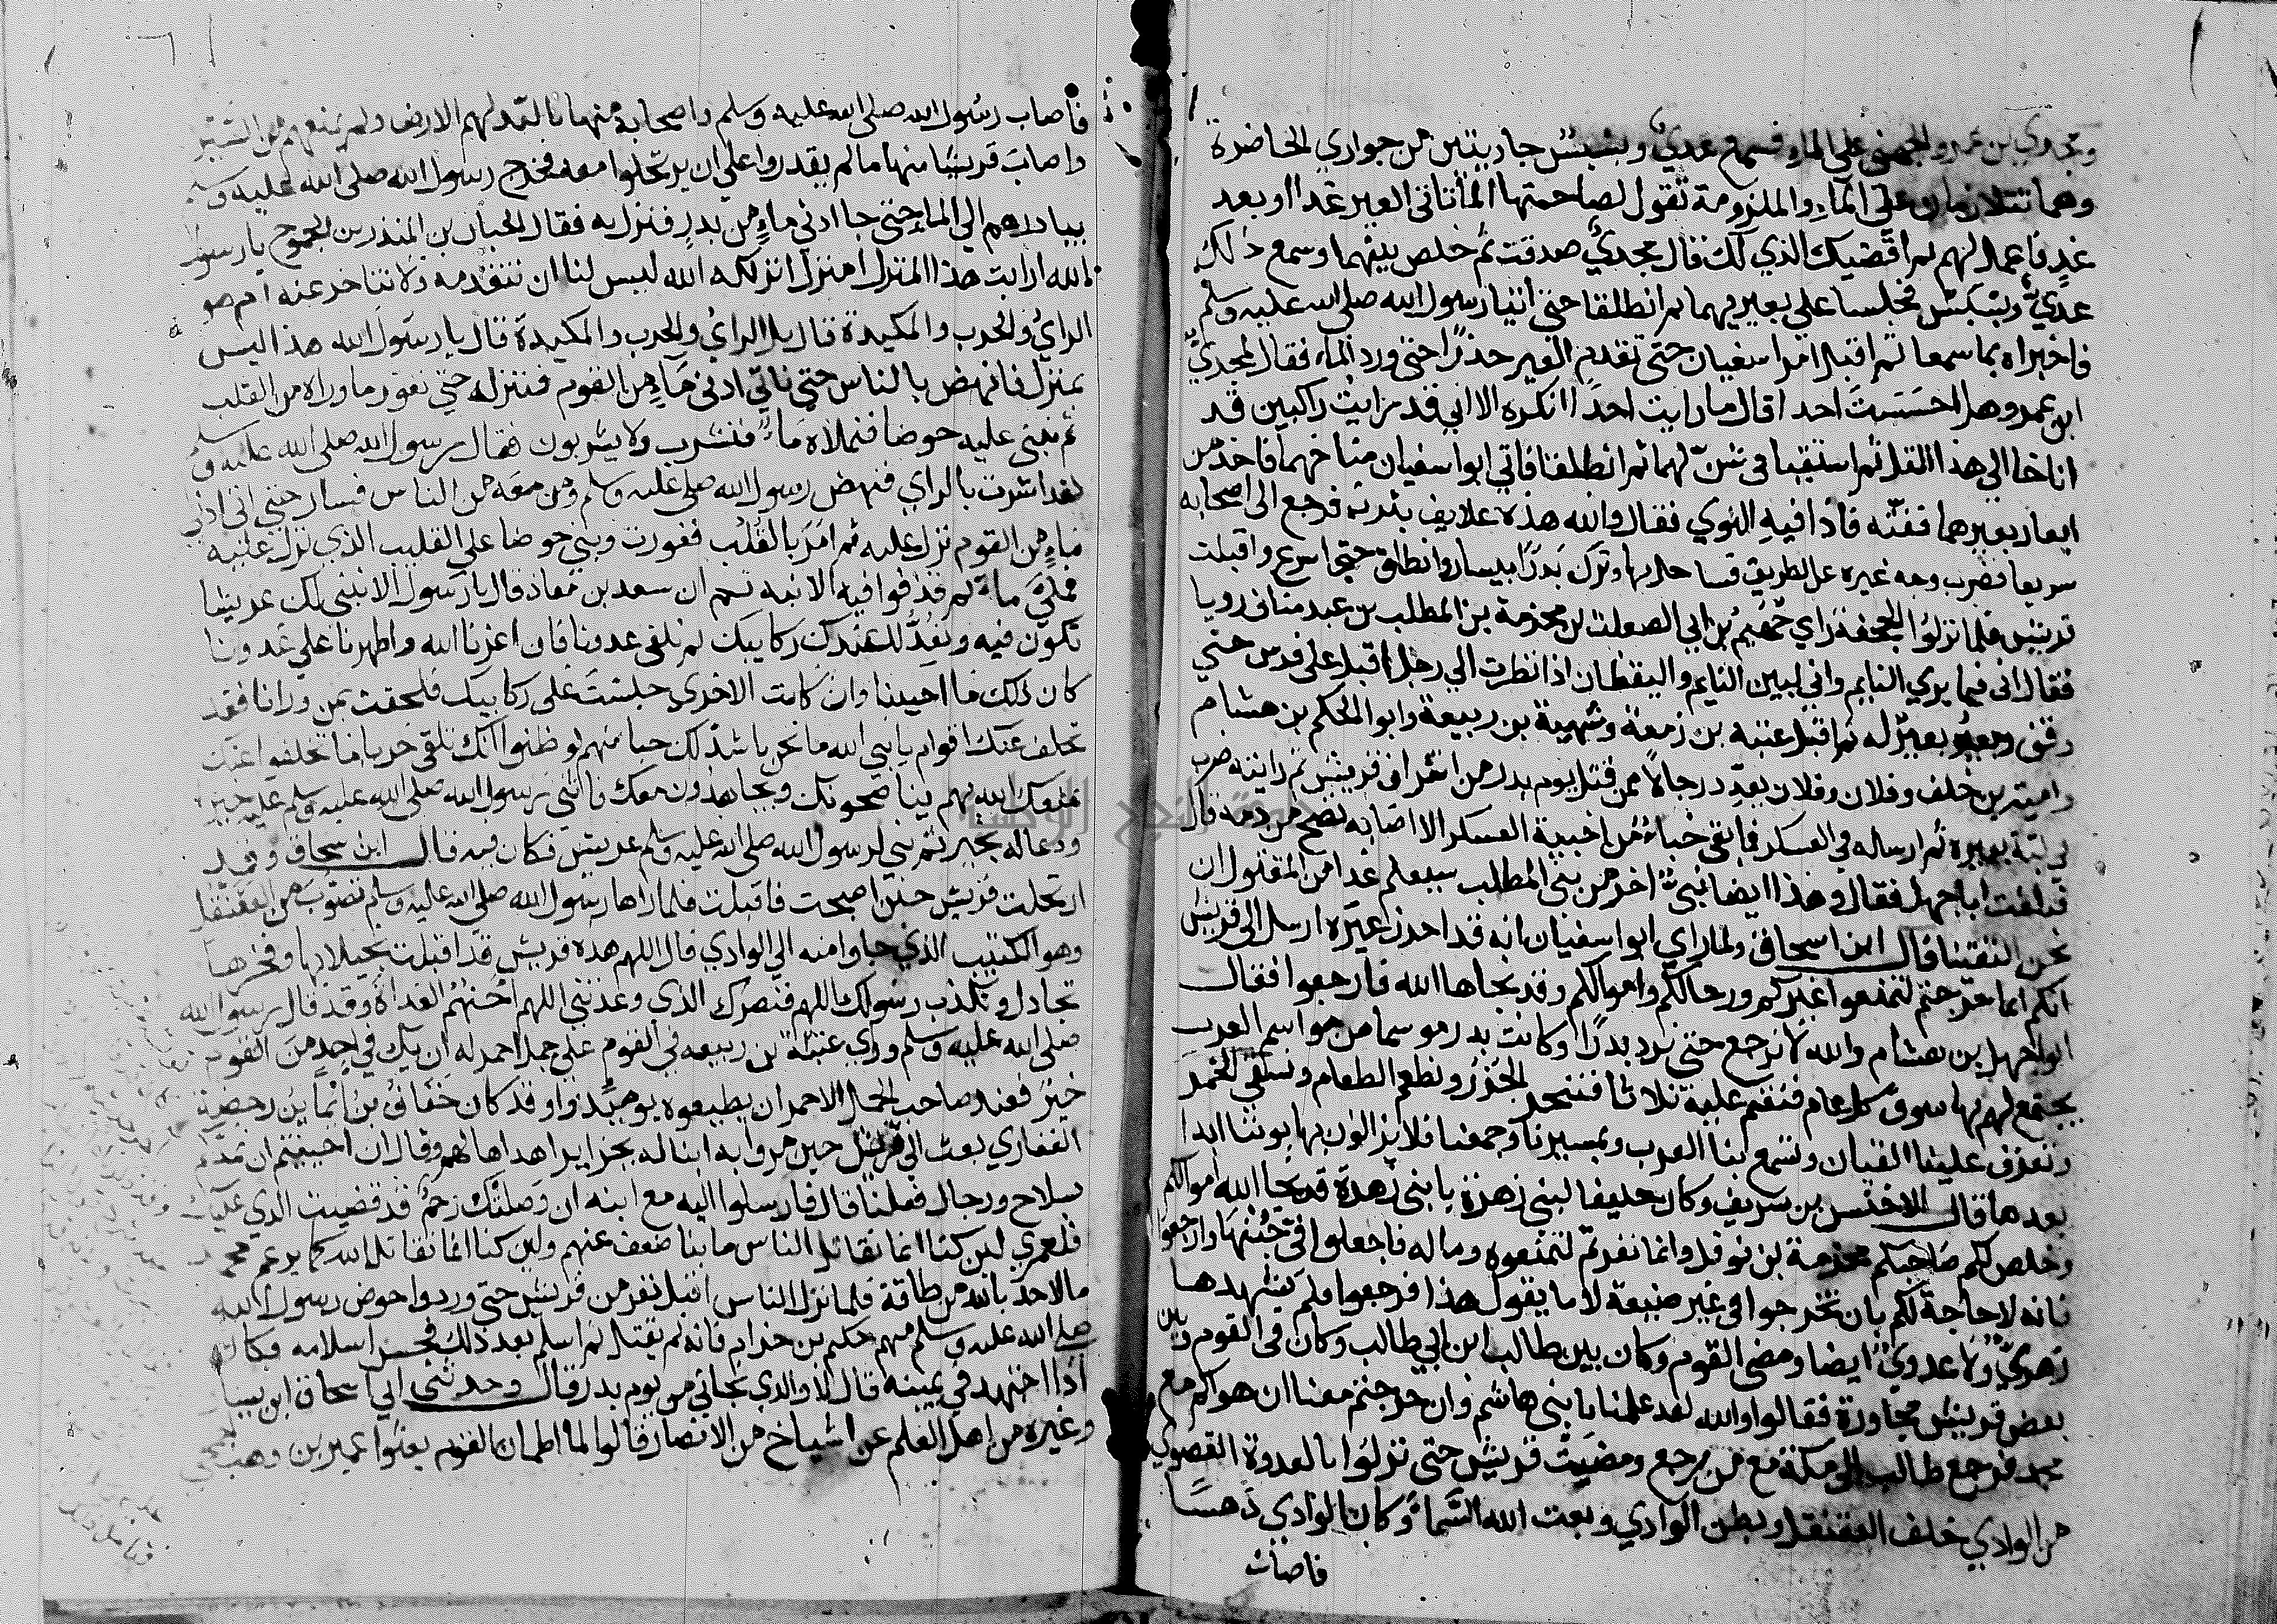 ومجدي بن عمرو الجهني علي الماء فسمع عدي وبسبس جاريتين من جواري الحاضرة
وهما تتلازمان علي الماء والملزومة تقول لصاحبتها انما تاتي العير غدا او بعد
غد فاعمل لهم ثم اقضيك الذي لك قال مجدي صدقت ثم خلص بينهما وسمع ذلك
عدي وبسبس فجلسا علي بعيريهما ثم انطلقا حتي اتيا رسول الله صلي الله عليه وسلم
فاخبراه بما سمعا ثم اقبل ابو سفيان حتي تقدم العير حذرا حتي ورد الماء فقال لمجدي
ابن عمرو هل احسست احدا قال ما رايت احدا انكره الا اني قد رايت راكبين قد
اناخا الي هذا التل ثم استقيا في شن لهما ثم انطلقا فاتي ابو سفيان مناخهما فاخذ من
ابعار بعيرهما ففته فاذا فيه النوي فقال والله هذه علايف يثرب فرجع الي اصحابه
سريعا فضرب وجه عيره عن الطريق فساحل بها وترك بدرا بيسار وانطلق حتي اسرع واقبلت
قريش فلما نزلوا الجحفة راي جهيم بن ابي الصلت بن مخرمة بن المطلب بن عبد مناف رويا
فقال اني فيما يري النايم واني لبين النايم واليقظان اذ نظرت الي رجل اقبل علي فرس حتي
وقف ومعه بعير له ثم اقبل عتبه بن زمعة وشيبة بن ربيعة وابو الحكم بن هشام
وامية بن خلف وفلان وفلان يعدد رجالا ممن قتل يوم بدر من اشراف قريش ثم رايته ضرب
في لبة بعيره ثم ارسله في العسكر فما بقي خباء من اخبية العسكر الا اصابه نضح من دمه قال
فبلغت ابا جهل فقال وهذا ايضا نبي اخر من بني المطلب سيعلم غدا من المقتول ان
نحن التقينا قال ابن اسحاق ولما راي ابو سفيان انه قد احرز عيره ارسل الي قريش
انكم انما خرجتم لتمنعوا عيركم ورحالكم واموالكم وقد نجاها الله فارجعوا فقال
ابو جهل بن هشام والله لا نرجع حتي نرد بدرا وكانت بدر موسما من مواسم العرب
يجتمع لهم بها سوق كل عام فنقيم عليه ثلاثا فننحر الجزر ونطعم الطعام ونسقي الخمر
وتعزف علينا القيان وتسمع بنا العرب وبمسيرنا وجمعنا فلا يزالون يهابوننا ابدا
بعدها قال الاخنس بن شريق وكان حليفا لبني زهرة يا بني زهرة قد نجا الله اموالكم
وخلص لكم صاحبكم مخرمة بن نوفل وانما نفرتم لتمنعوه وماله فاجعلوا في جبنها وارجعوا
فانه لا حاجة لكم بان تخرجوا في غير ضيعة لا ما يقول هذا فرجعوا فلم يشهدها
زهري ولا عدوي ايضا ومضي القوم وكان بين طالب ابن ابي طالب وكان في القوم وبين
بعض قريش محاورة فقالوا والله لقد علمنا يا بني هاشم وان خرجتم معنا ان هواكم مع
محمد فرجع طالب الي مكة مع من رجع ومضت قريش حتي نزلوا بالعدوة القصوي
من الوادي خلف العقنقل وبطن الوادي وبعث الله السماء وكان الوادي دهسا
فاصاب
فاصاب رسول الله صلي الله عليه وسلم واصحابه منها ما لبد لهم الارض ولم يمنعهم من السير
واصاب قريشا منها ما لم يقدروا علي ان يرتحلوا معه فخرج رسول الله صلي الله عليه وسلم
يبادرهم الي الماء حتي جا ادني ماء من بدر فنزل به فقال الحباب بن المنذر بن الجموح يا رسول
الله ارايت هذا المنزل امنزل انزلكه الله ليس لنا ان نتقدمه ولا نتاخر عنه ام هو
الراي والحرب والمكيدة قال بل الراي والحرب والمكيدة قال يا رسول الله هذا ليس
بمنزل فانهض بالناس حتي ناتي ادني ماء من القوم فننزله حتي نغور ما وراه من القلب
ثم نبني عليه حوضا فنملاه ماء فنشرب ولا يشربون فقال رسول الله صلي الله عليه وسلم
لقد اشرت بالراي فنهض رسول الله صلي عليه وسلم ومن معه من الناس فسار حتي اتي ادني
ماء من القوم نزل عليه ثم امر بالقلب فغورت وبني حوضا علي القليب الذي نزل عليه
فملي ماء ثم قذفوا فيه الانيه ثم ان سعد بن معاذ قال يا رسول الا نبني لك عريشا
تكون فيه ونعد عندك ركايبك ثم نلقي عدونا فان اعزنا الله واظهرنا علي عدونا
كان ذلك ما احببنا وان كانت الاخري جلست علي ركايبك فلحقت بمن ورانا فقد
تخلف عنك اقوام يا نبي الله ما نحن باشد لك حبا منهم لو ظنوا انك تلقي حربا ما تخلفوا عنك
يمنعك الله بهم يناصحونك ويجاهدون معك فاثني رسول الله صلي الله عليه وسلم عليه خيرا
ودعا له بخير ثم بني لرسول الله صلي الله عليه وسلم عريش فكان فيه قال ابن اسحاق وقد
ارتحلت قريش حين اصبحت فاقبلت فلما راها رسول الله صلي الله عليه وسلم تصوب من العقنقل
وهو الكثيب الذي جاوا منه الي الوادي قال اللهم هذه قريش قد اقبلت بخيلايها وفخرها
تجادل وتكذب رسولك اللهم فنصرك الذي وعدتني اللهم احنهم الغداة وقد قال رسول الله
صلي الله عليه وسلم وراي عتبة بن ربيعه في القوم علي جمل احمر له ان يك في احد من القوم
خير فعند صاحب الجمل الاحمر ان يطيعوه يرشدوا وقد كان خفاف بن ايما بن رحضة
الغفاري بعث الي قريش حين مروا به ابنا له بجزاير اهداها لهم وقال ان احببتم ان نمدكم
بسلاح ورجال فعلنا قال فارسلوا اليه مع ابنه ان وصلتك رحم قد قضيت الذي عليك
فلعمري لين كنا انما نقاتل الناس ما بنا ضعف عنهم ولين كنا انما نقاتل الله كما يزعم محمد
ما لاحد بالله من طاقة فلما نزل الناس اقبل نفر من قريش حتي وردوا حوض رسول الله
صلي الله عليه وسلم منهم حكيم بن حزام فانه لم يقتل ثم اسلم بعد ذلك فحسن اسلامه فكان
اذا اجتهد في يمينه قال لا والذي نجاني من يوم بدر قال وحدثني ابي اسحاق ابن يسار
وغيره من اهل العلم عن اشياخ من الانصار قالوا لما اطمان القوم بعثوا عمير بن وهب الجمحي